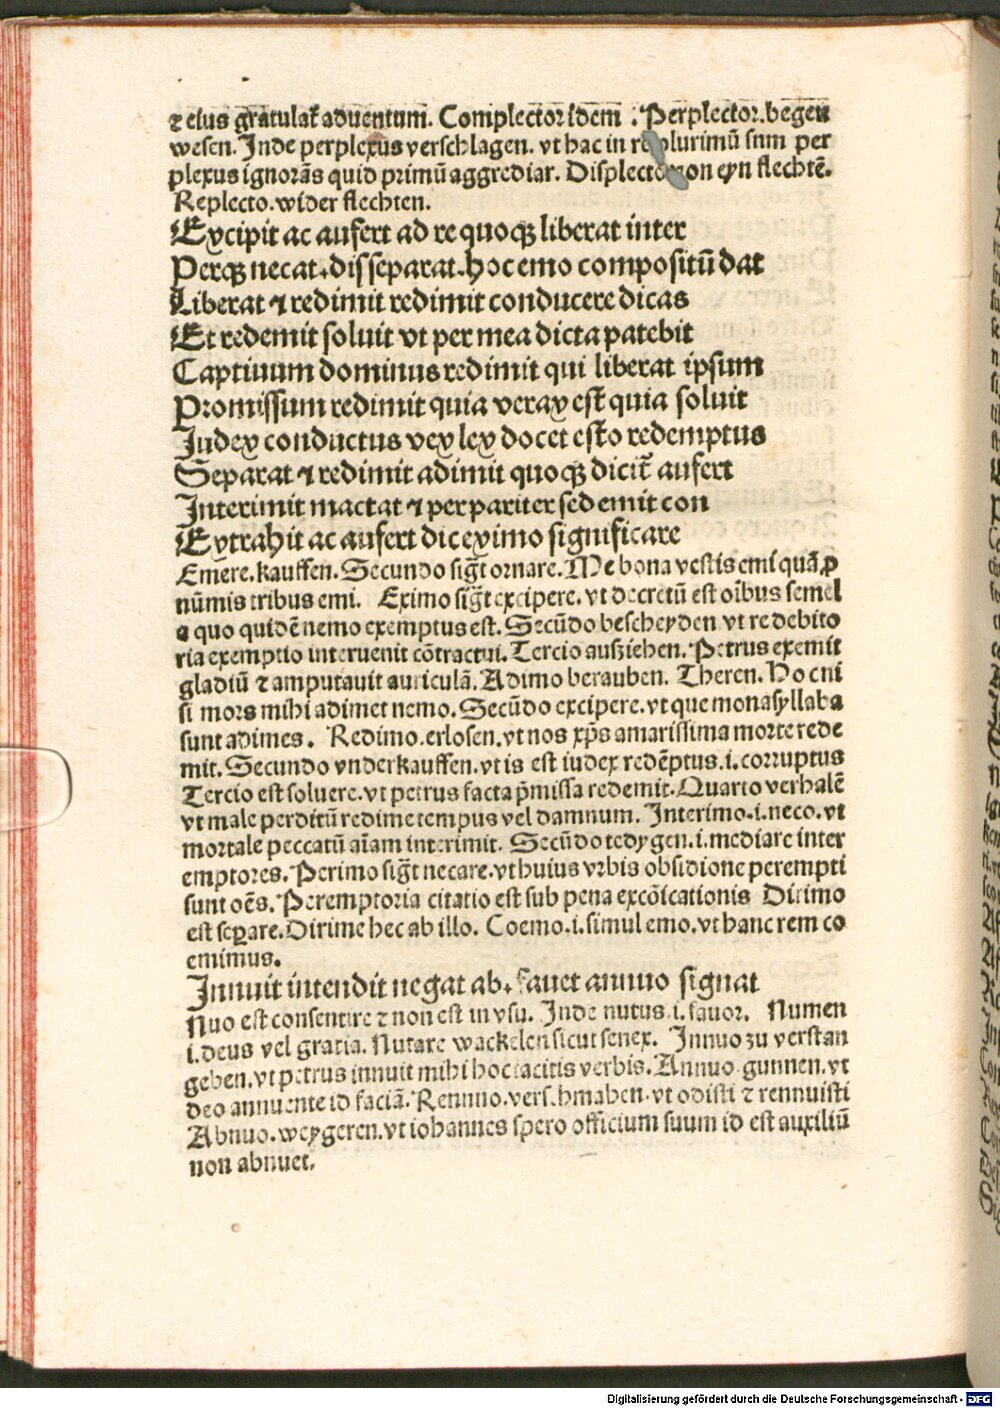 ⁊ eius gratulat᷑ aduentum. Complector idem : Perplector. begen
wesen. Inde perplexus verschlagen. vt hac in re plurimū sum per
plexus ignorās quid primū aggrediar. Displecto von eyn flechtē.
Replecto. wider flechten.
Excipit ac aufert ad re quoqꝫ liberat inter
Perqꝫ necat. disseparat. hoc emo compositū dat
Liberat ⁊ redimit redimit conducere dicas
Et redemit soluit vt per mea dicta patebit
Captiuum dominus redimit qui liberat ipsum
Promissum redimit quia verax est quia soluit
Iudex conductus vex lex docet esto redemptus
Separat ⁊ redimit adimit quoqꝫ dicit᷑ aufert
Interimit mactat ⁊ per pariter sed emit con
Extrahit ac aufert dic eximo significare
Emere. kauffen. Secundo sig̃t ornare. Me bona vestis emi quā ꝓ
nūmis tribus emi. Eximo sig̃t excipere. vt decretū est oībus semel
a quo quidē nemo exemptus est. Secūdo bescheyden vt re debito
ria exemptio interuenit cōtractui. Tercio ausziehen. Petrus exemit
gladiū ⁊ amputauit auriculā. Adimo berauben. Theren. Ho cni
si mors mihi adimet nemo. Secūdo excipere. vt que monasyllaba
sunt adimes. Redimo. erlosen. vt nos xp̄s amarissima morte rede
mit. Secundo vnderkauffen. vt is est iudex redēptus. i. corruptus
Tercio est soluere. vt petrus facta p̄missa redemit. Quarto verhalē
vt male perditū redime tempus vel damnum. Interimo. i. neco. vt
mortale peccatū aīam interimit. Secūdo tedygen. i. mediare inter
emptores. Perimo sig̃t necare. vt huius vrbis obsidione perempti
sunt oēs. Peremptoria citatio est sub pena excōicationis Dirimo
est seꝑare. Dirime hec ab illo. Coemo. i. simul emo. vt hanc rem co
emimus.
Innuit intendit negat ab. fauet annuo signat
Nuo est consentire ⁊ non est in vsu. Inde nutus. i. fauor. Numen
i. deus vel gratia. Nutare wackelen sicut senex. Innuo zu verstan
geben. vt petrus innuit mihi hoc tacitis verbis. Annuo gunnen. vt
deo annuente id faciā. Rennuo. verschmahen. vt odisti ⁊ rennuisti
Abnuo. weygeren. vt iohannes spero officium suum id est auxiliū
non abnuet.
Digitalisierung gefördert durch die Deutsche Forschungsgemeinschaft - DFG